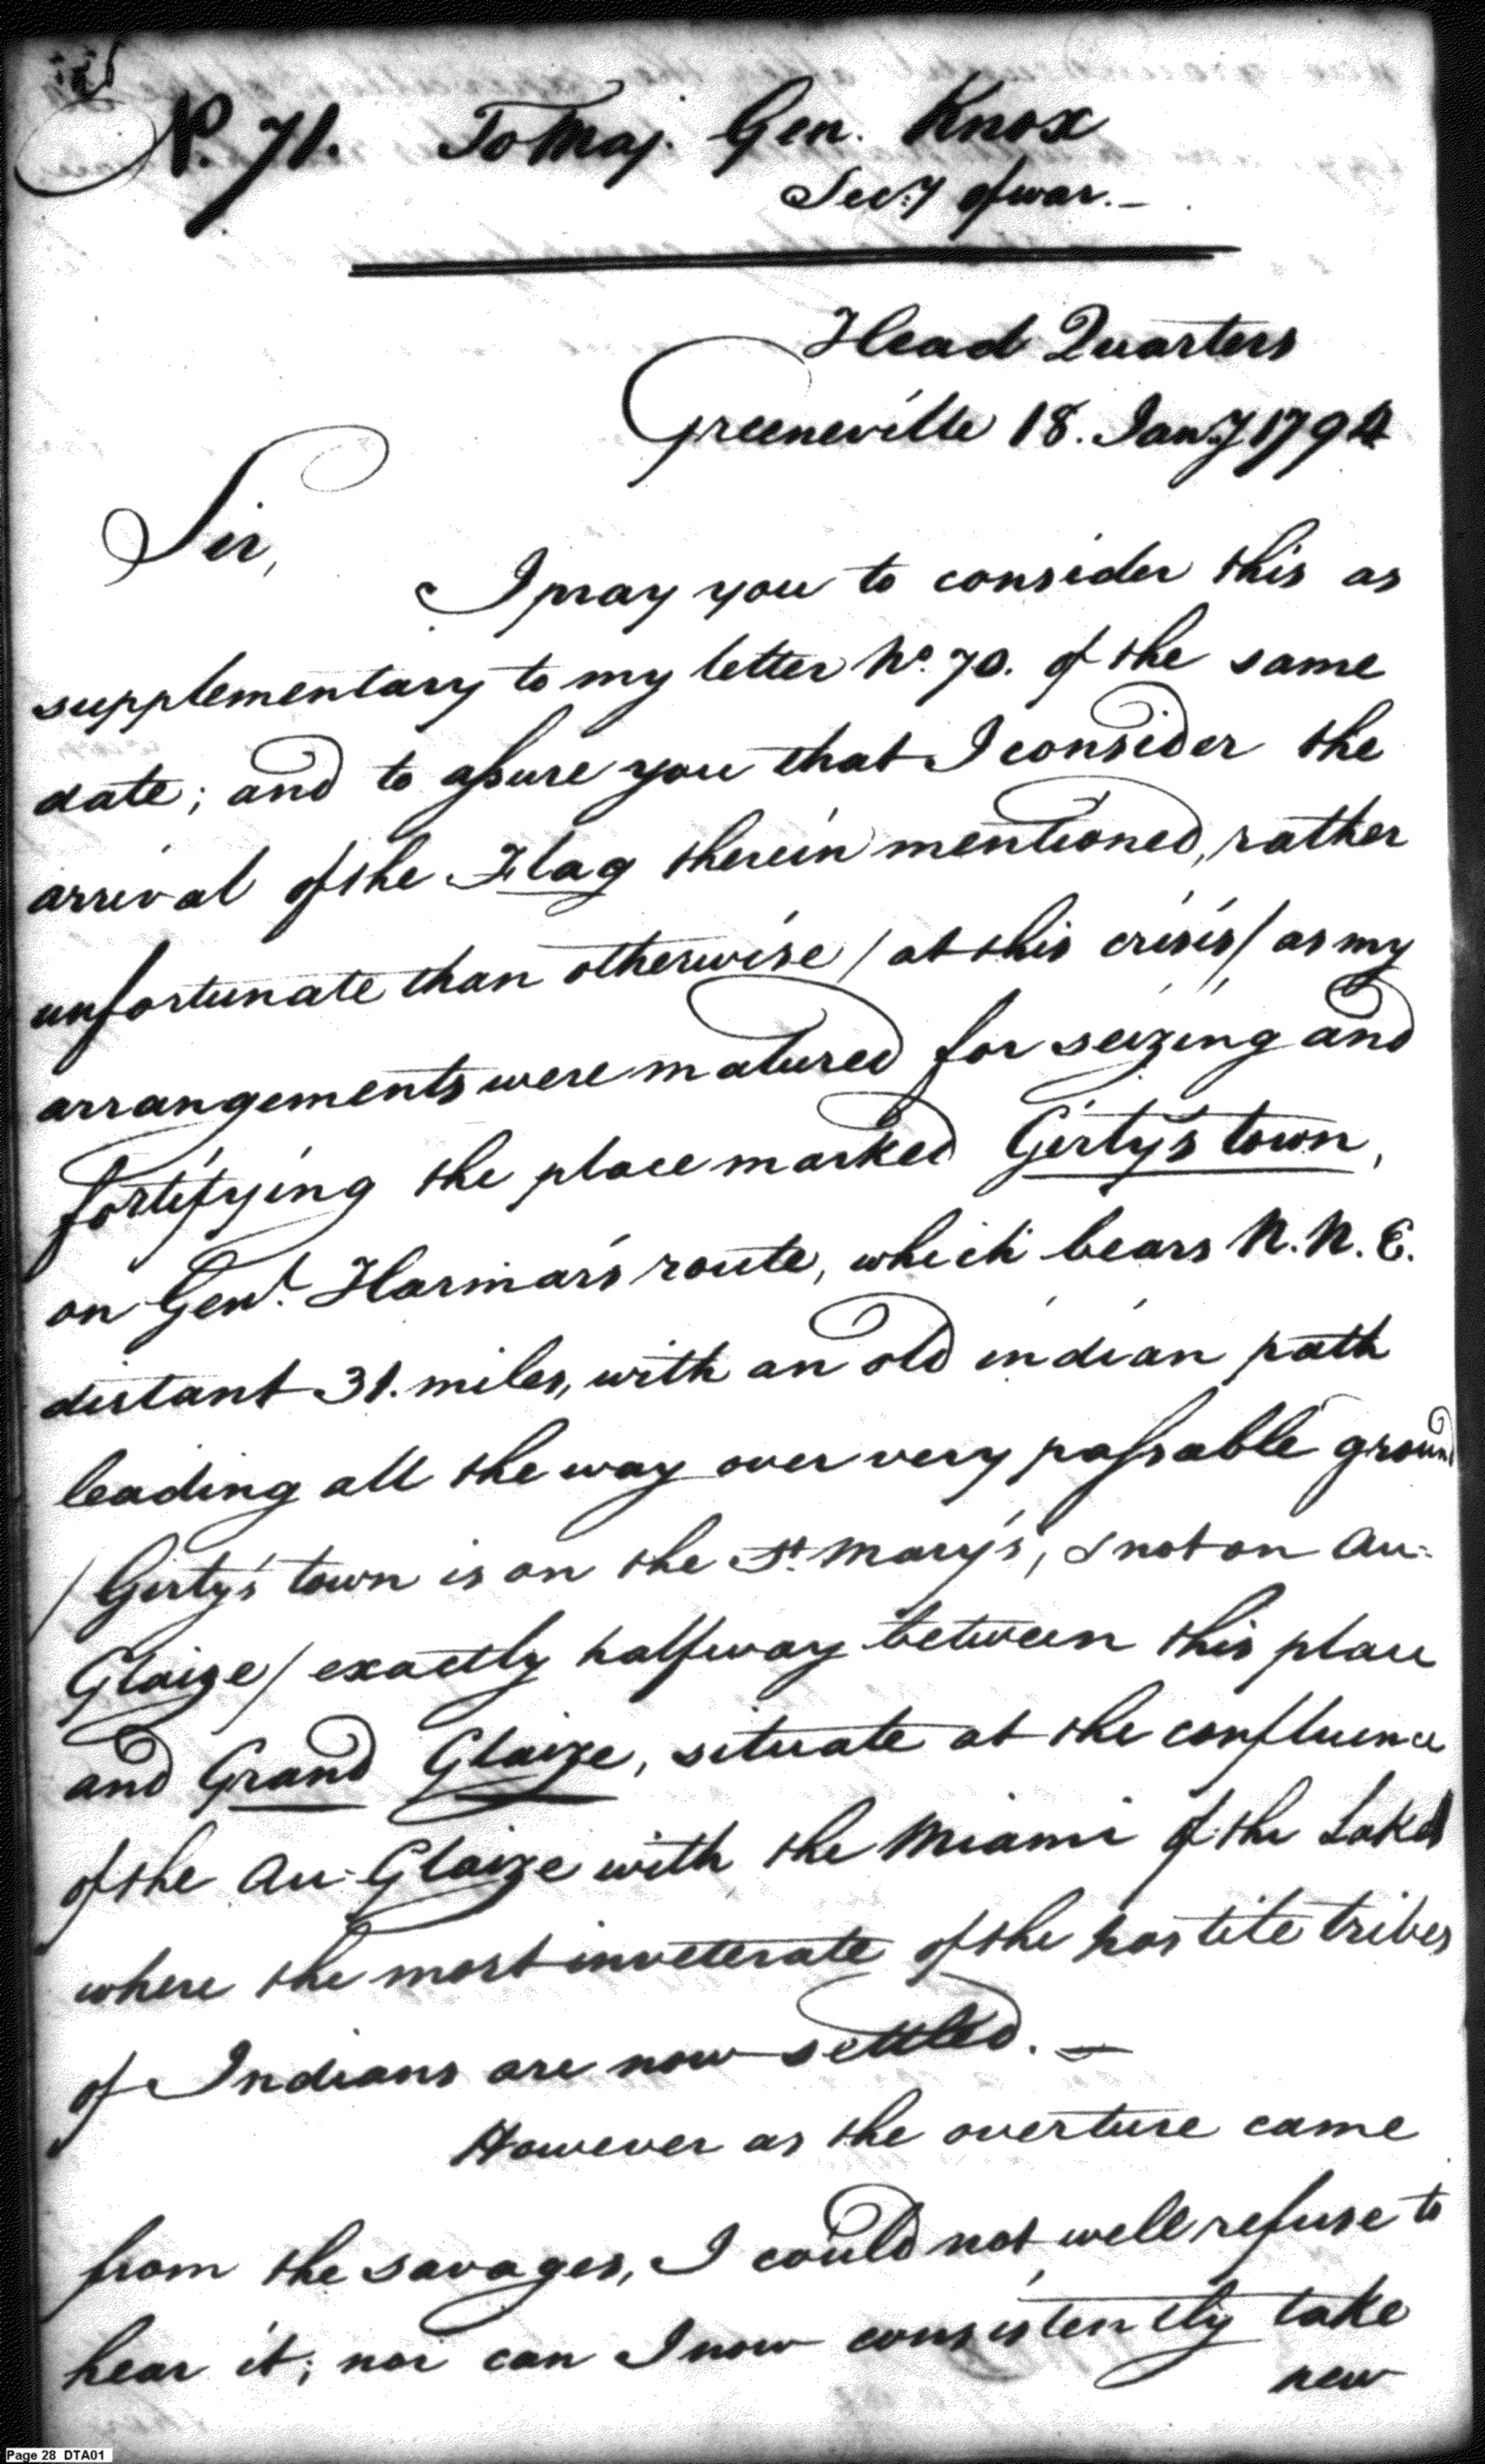 No. 71. To Maj. Gen. Knox
Secy of war.—
Head Quarters
Greeneville 18. Jany 1794
Sir,
I pray you to consider this as
supplementary to my letter No. 70. of the same
date; and to assure you that I consider the
arrival of the Flag therein mentioned, rather
unfortunate than otherwise / at this crisis / as my
arrangements were matured for seizing and
fortifying the place marked Girty's town,
on Genl. Harmar's route, which bears N. N. E.
distant 31. miles, with an old indian path
leading all the way over very passable ground
/ Girty's town is on the St. Mary's, & not on Au-
Glaize / exactly halfway between this place
and Grand Glaize, situate at the confluence
of the Au-Glaize with the Miami of the Lakes
where the most inveterate of the hostile tribes
of Indians are now settled.—
However as the overture came
from the savages, I could not well refuse to
hear it; nor can I now consistently take
new
Page 28 DTA01